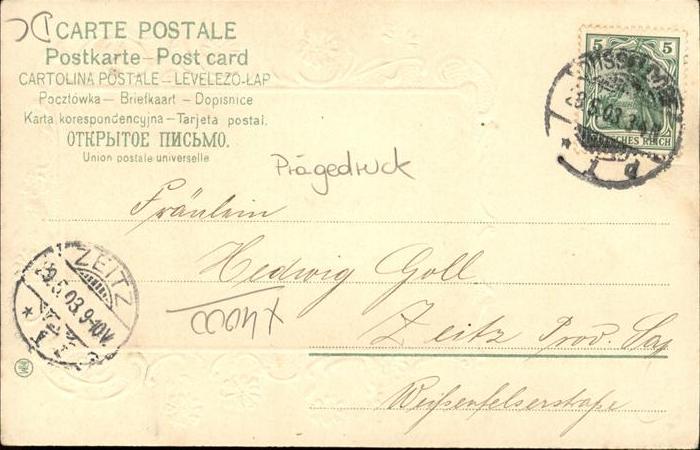 CARTE POSTALE
Postkarte – Post card
CARTOLINA POSTALE – LEVELEZÖ-LAP
Pocztówka – Briefkaart – Dopisnice
Karta korespondencyjna – Tarjeta postal.
ОТКРЫТОЕ ПИСЬМО.
Union postale universelle
5 5
DEUTSCHES REICH
Prägedruck
Fräulein
Hedwig Goll
Zeitz Prov. Sag
Weißenfelserstraße
ZEITZ
29.5.03.9-10V.